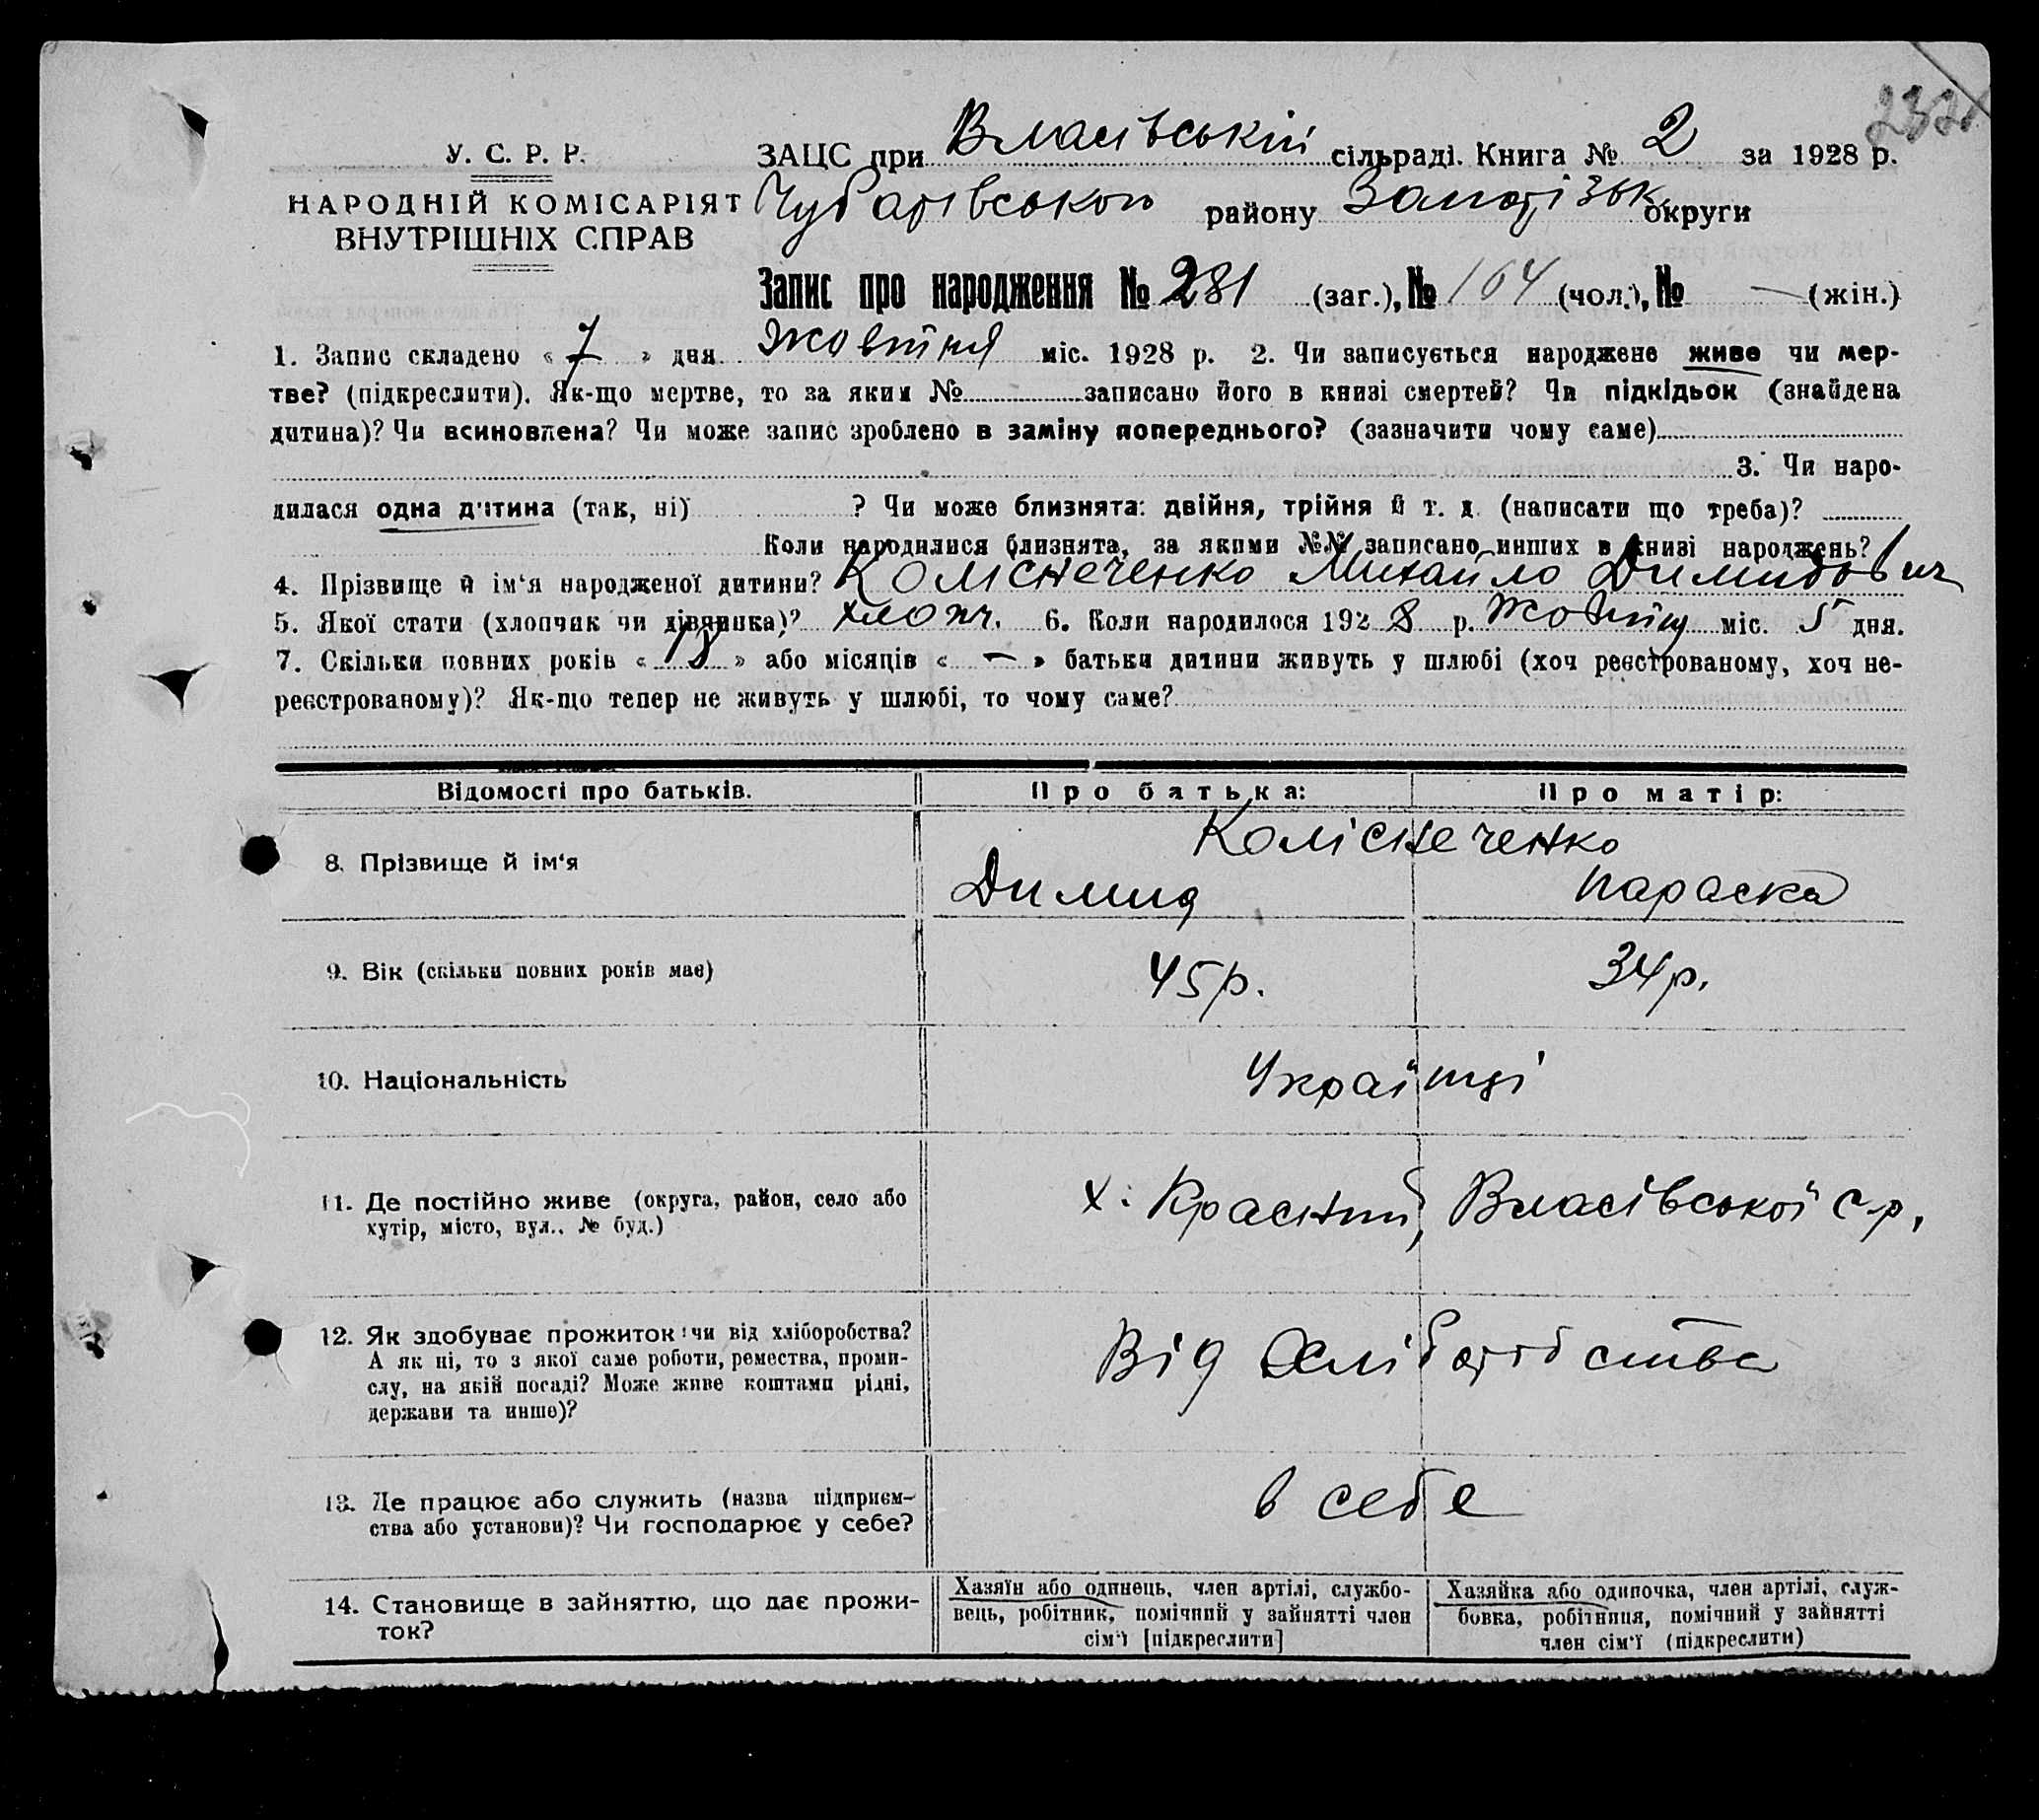 232
У. С. Р. Р.
НАРОДНІЙ КОМІСАРІЯТ
ВНУТРІШНІХ СПРАВ
ЗАЦС при Власівській сільраді. Книга № 2 за 1928 р.
Чубарівського району Запорізьк округи
Запис про народження № 281 (заг.), № 164 (чол.), № — (жін.)
1. Запис складено « 7 » дня Жовтня міс. 1928 р. 2. Чи записується народжене живе чи мер-
тве? (підкреслити). Як-що мертве, то за яким № записано його в книзі смертей? Чи підкідьок (знайдена
дитина)? Чи всиновлена? Чи може запис зроблено в заміну попереднього? (зазначити чому саме)
3. Чи наро-
дилася одна дитина (так, ні) ? Чи може близнята: двійня, трійня й т. д. (написати що треба)?
Коли народилися близнята, за якими №№ записано инших в книзі народжень?
4. Прізвище й ім‘я народженої дитини? Коліснеченко Михайло Димидович
5. Якої стати (хлопчик чи дівчинка)? хлопч. 6. Коли народилося 192 8 р. Жовтня міс. 5 дня.
7. Скільки повних років « » або місяців « — » батьки дитини живуть у шлюбі (хоч реєстрованому, хоч не-
реєстрованому)? Як-що тепер не живуть у шлюбі, то чому саме?
Відомості про батьків. Про батька: Про матір:
8. Прізвище й ім‘я Коліснеченко
Димид Параска
9. Вік (скільки повних років має) 45 р. 34 р.
10. Національність Українці
11. Де постійно живе (округа, район, село або
хутір, місто, вул., № буд.)
х. Красний, Власівської с-р,
12. Як здобуває прожиток: чи від хліборобства?
А як ні, то з якої саме роботи, ремества, проми-
слу, на якій посаді? Може живе коштами рідні,
держави та инше)?
Від хліборобства
13. Де працює або служить (назва підприєм-
ства або установи)? Чи господарює у себе?
в себе
14. Становище в зайняттю, що дає прожи-
ток?
Хазяїн або одинець, член артілі, службо-
вець, робітник, помічний у зайнятті член
сім‘ї [підкреслити]
Хазяйка або одиночка, член артілі, служ-
бовка, робітниця, помічний у зайнятті
член сім‘ї (підкреслити)